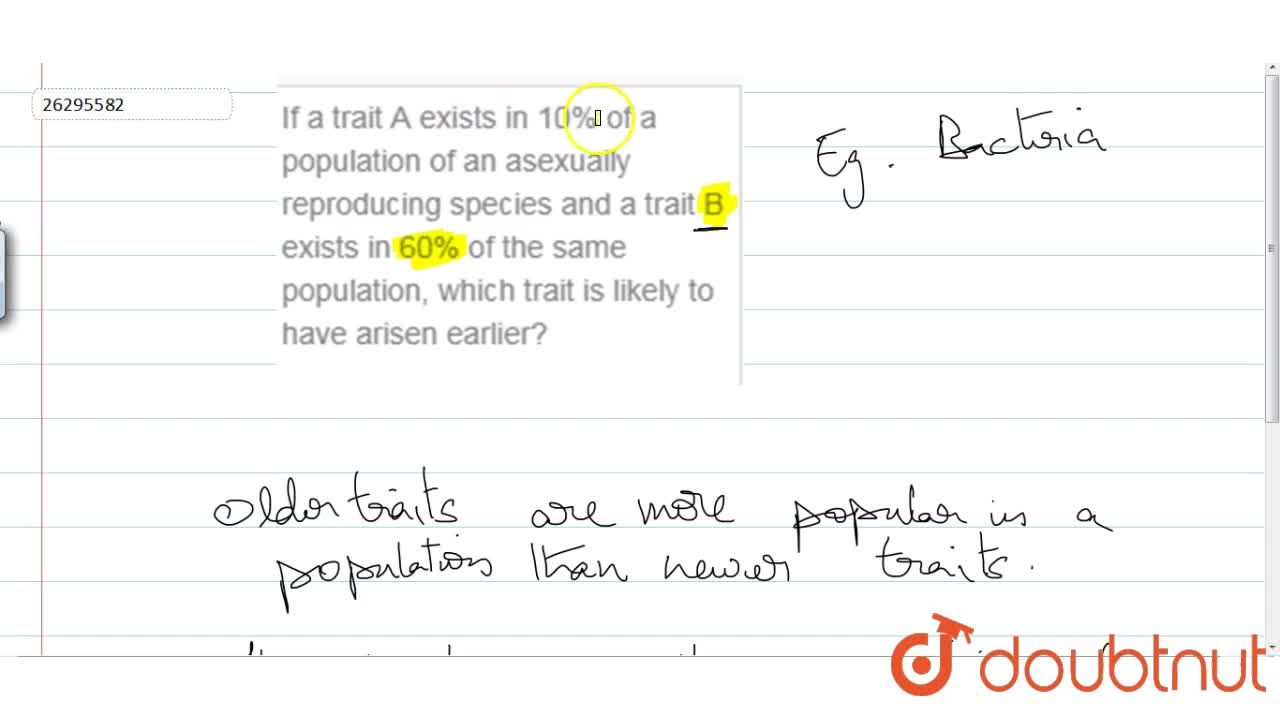 26295582
If a trait A exists in 10% of a
population of an asexually
reproducing species and a trait B
exists in 60% of the same
population, which trait is likely to
have arisen earlier?
Eg. Bacteria
Older traits are more popular in a
population than newer traits.
doubtnut